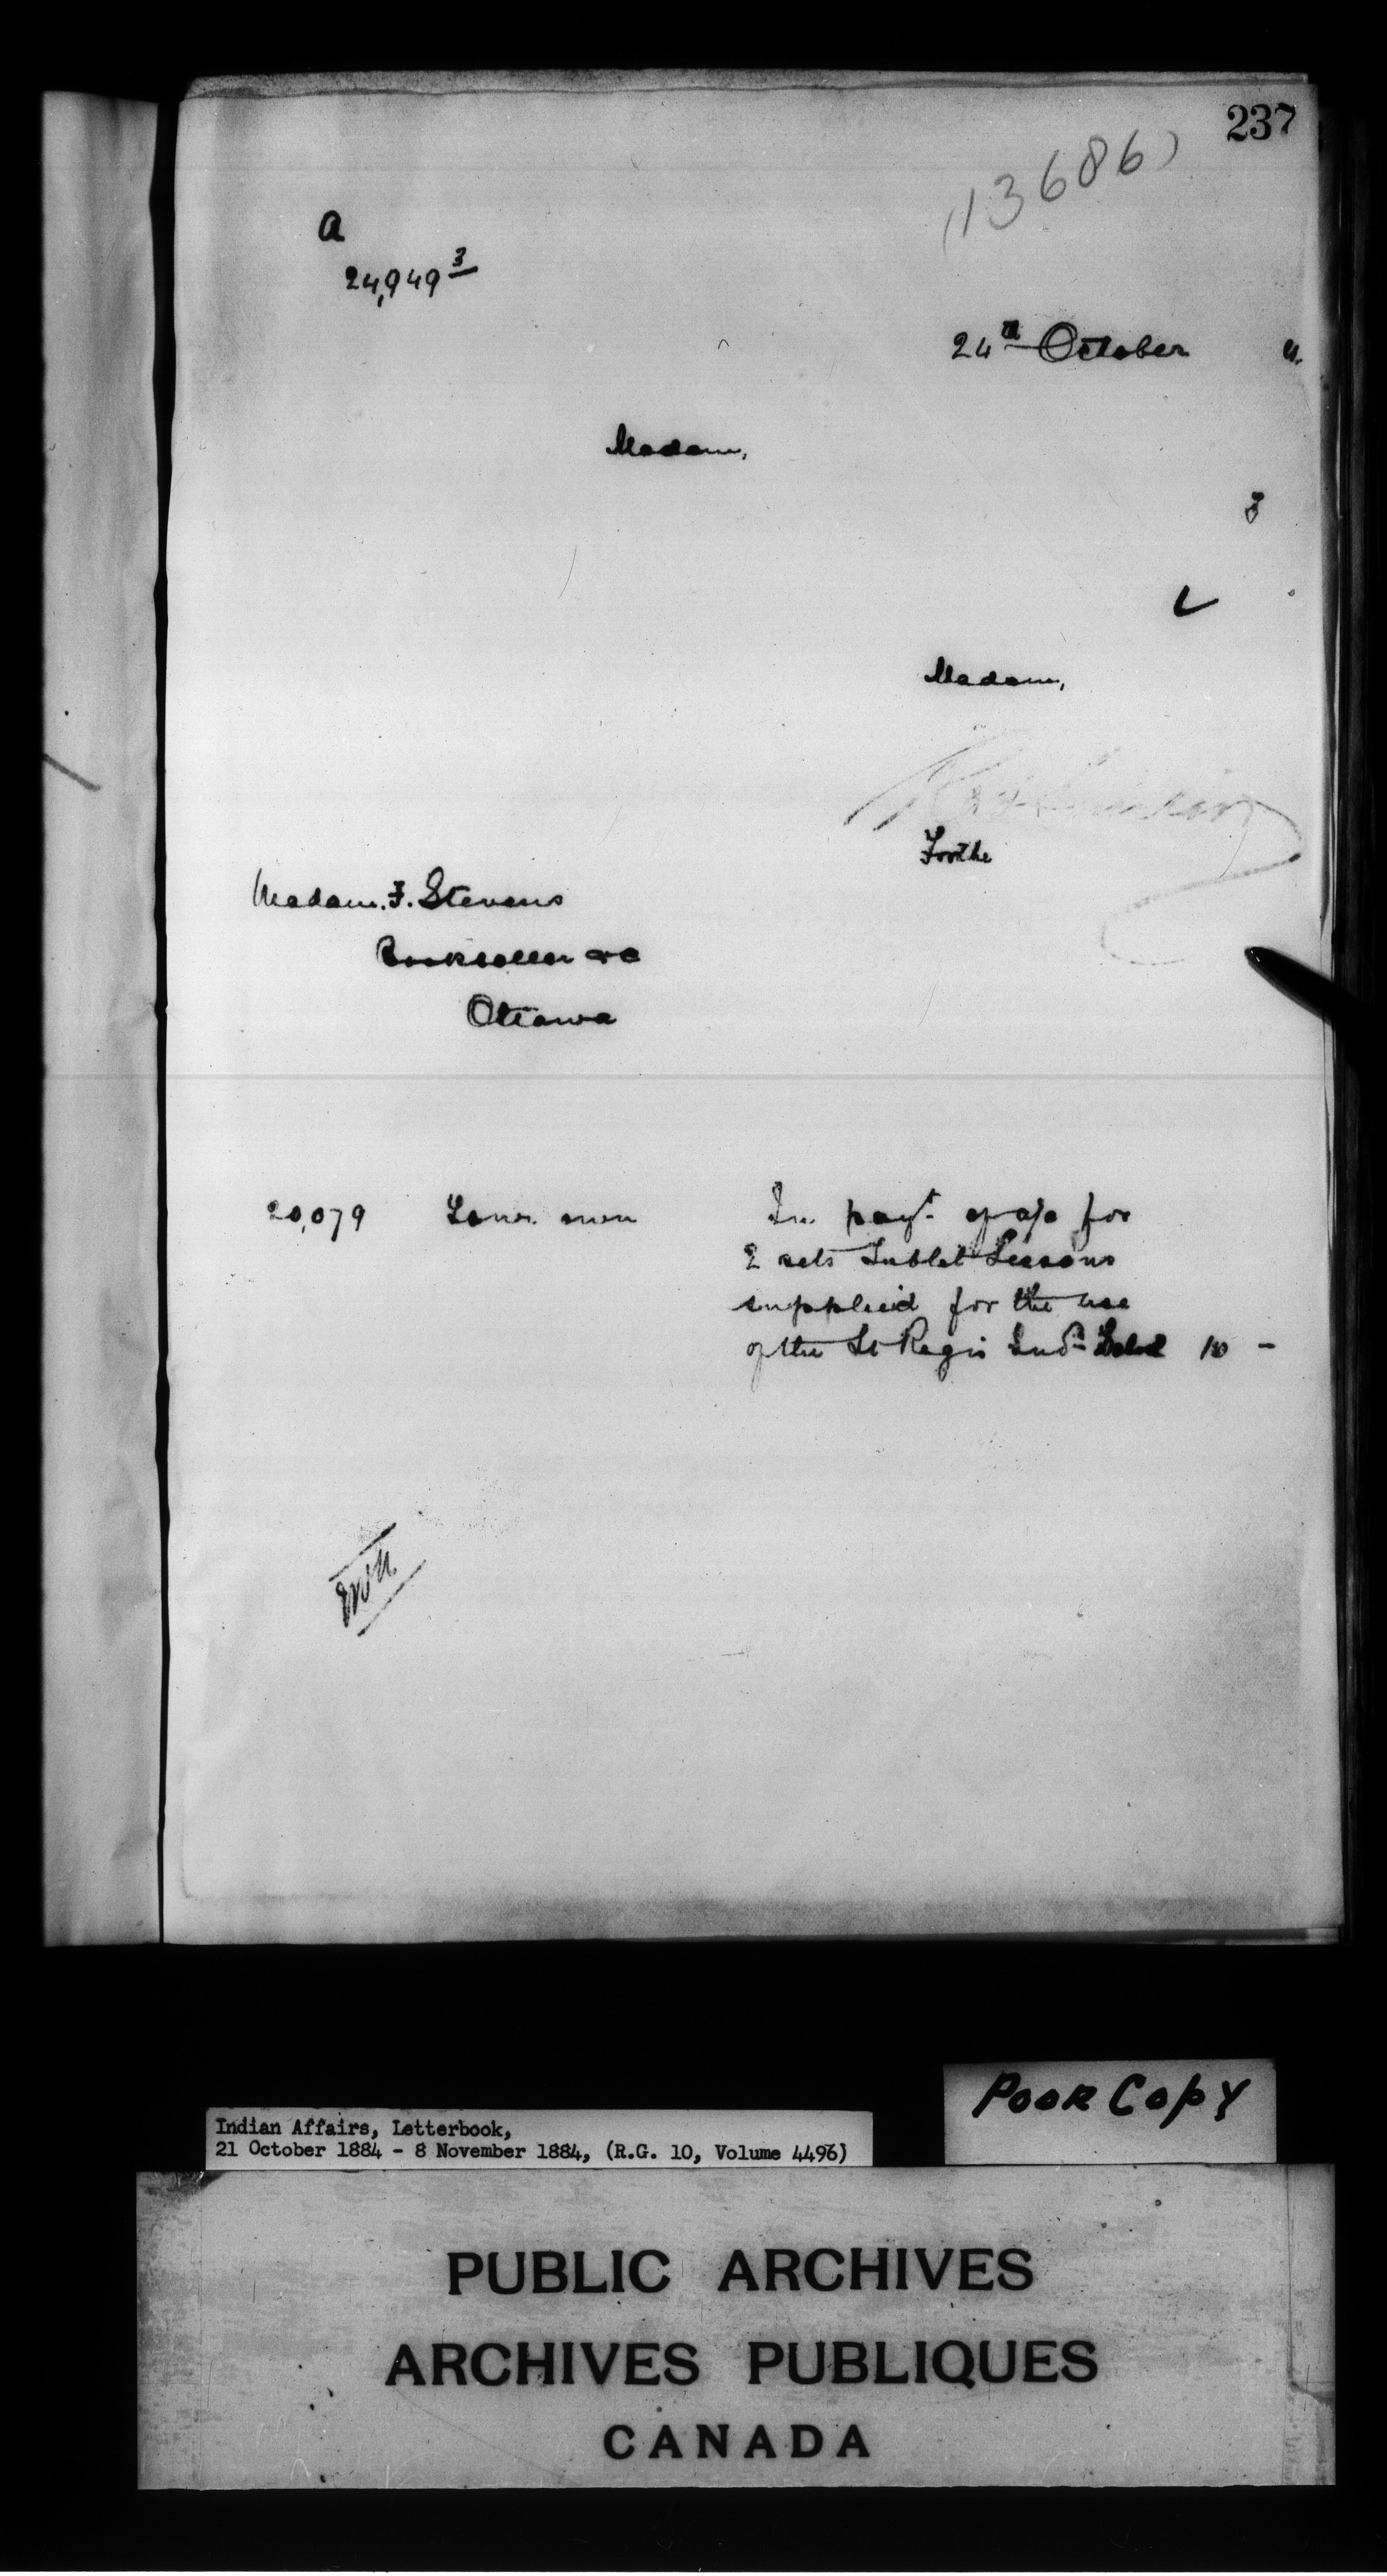 237
(13686)
A
24,949 3
24th October 4.
Madam,
3
Madam,
For the
Madam. F. Stevens
Bookseller &c
Ottawa
20,079
In payt of a/c for
2 sets Tablet Lessons
supplied for the use
of the St Regis Indn School 10 -
Poor Copy
Indian Affairs, Letterbook,
21 October 1884 - 8 November 1884, (R.G. 10, Volume 4496)
PUBLIC ARCHIVES
ARCHIVES PUBLIQUES
CANADA